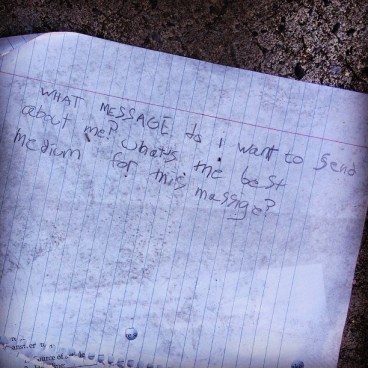 WHAT MESSAGE do i want to send
about me? what's the best
medium for this massage?
source of